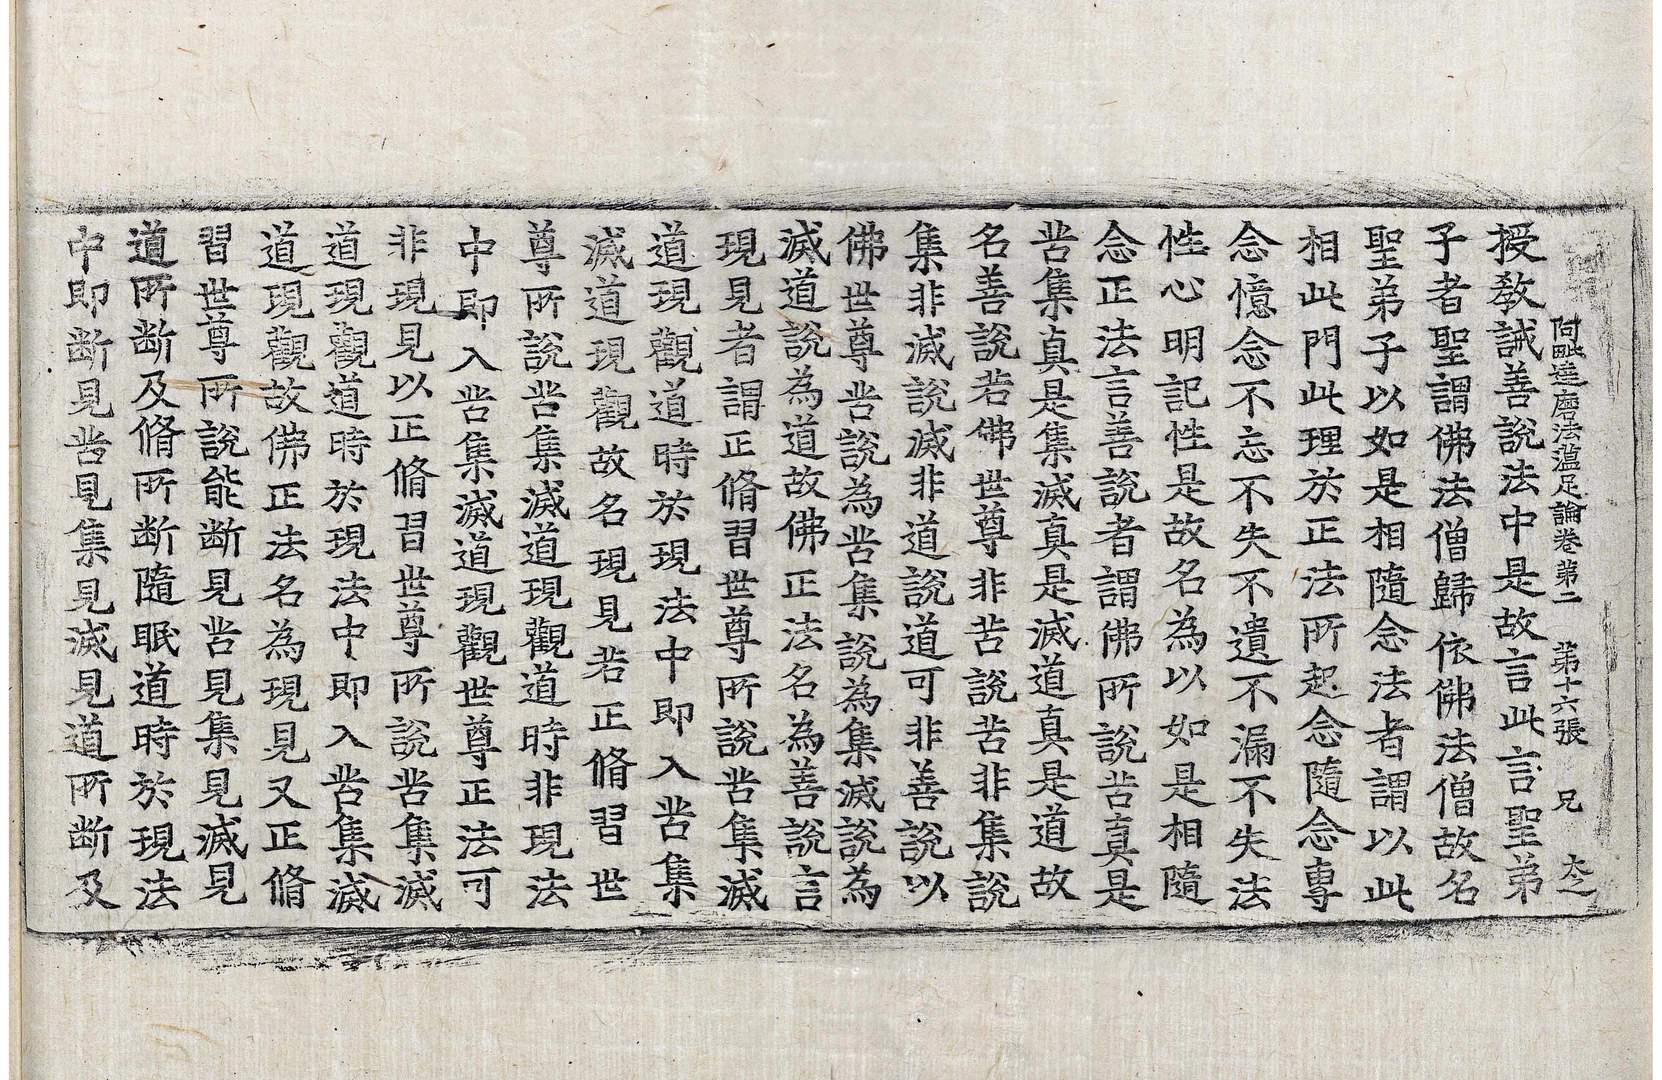 阿毗達磨法蘊足論卷第二 第十六張 兄 大之
授教誡善說法中是故言此言聖弟
子者聖謂佛法僧歸依佛法僧故名
聖弟子以如是相隨念法者謂以此
相此門此理於正法所起念隨念專
念憶念不忘不失不遺不漏不失法
性心明記性是故名為以如是相隨
念正法言善說者謂佛所說苦真是
苦集真是集滅真是滅道真是道故
名善說若佛世尊非苦說苦非集說
集非滅說滅非道說道可非善說以
佛世尊苦說為苦集說為集滅說為
滅道說為道故佛正法名為善說言
現見者謂正脩習世尊所說苦集滅
道現觀道時於現法中即入苦集
滅道現觀故名現見若正脩習世
尊所說苦集滅道現觀道時非現法
中即入苦集滅道現觀世尊正法可
非現見以正脩習世尊所說苦集滅
道現觀道時於現法中即入苦集滅
道現觀故佛正法名為現見又正脩
習世尊所說能断見苦見集見滅見
道所断及脩所断隨眠道時於現法
中即断見苦見集見滅見道所断及